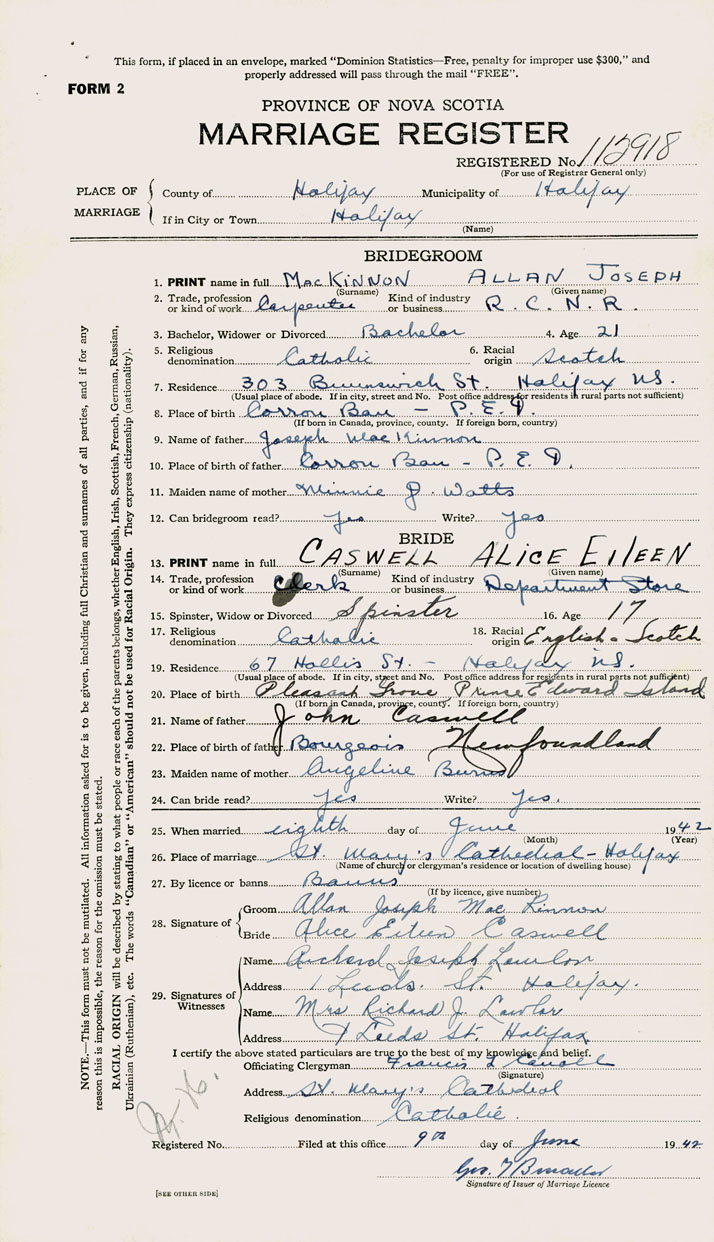 This form, if placed in an envelope, marked "Dominion Statistics—Free, penalty for improper use $300," and
properly addressed will pass through the mail "FREE".
FORM 2
PROVINCE OF NOVA SCOTIA
MARRIAGE REGISTER
REGISTERED No. 112918
(For use of Registrar General only)
PLACE OF MARRIAGE
County of Halifax Municipality of Halifax
If in City or Town Halifax
(Name)
BRIDEGROOM
1. PRINT name in full MacKINNON ALLAN JOSEPH
(Surname) (Given name)
2. Trade, profession or kind of work Carpenter Kind of industry or business R. C. N. R.
3. Bachelor, Widower or Divorced Bachelor 4. Age 21
5. Religious denomination Catholic 6. Racial origin Scotch
7. Residence 303 Brunswick St. Halifax N.S.
(Usual place of abode. If in city, street and No. Post office address for residents in rural parts not sufficient)
8. Place of birth Corron Ban — P. E. I.
(If born in Canada, province, county. If foreign born, country)
9. Name of father Joseph MacKinnon
10. Place of birth of father Corron Ban — P. E. I.
11. Maiden name of mother Minnie J. Watts
12. Can bridegroom read? Yes Write? Yes
BRIDE
13. PRINT name in full CASWELL ALICE EILEEN
(Surname) (Given name)
14. Trade, profession or kind of work Clerk Kind of industry or business Department Store
15. Spinster, Widow or Divorced Spinster 16. Age 17
17. Religious denomination Catholic 18. Racial origin English - Scotch
19. Residence 67 Hollis St. — Halifax N.S.
(Usual place of abode. If in city, street and No. Post office address for residents in rural parts not sufficient)
20. Place of birth Pleasant Grove Prince Edward Island
(If born in Canada, province, county. If foreign born, country)
21. Name of father John Caswell
22. Place of birth of father Bourgeois Newfoundland
23. Maiden name of mother Angeline Burns
24. Can bride read? Yes Write? Yes.
25. When married eighth day of June 1942
(Month) (Year)
26. Place of marriage St. Mary's Cathedral - Halifax
(Name of church or clergyman's residence or location of dwelling house)
27. By licence or banns Banns
(If by licence, give number)
28. Signature of
Groom Allan Joseph MacKinnon
Bride Alice Eileen Caswell
29. Signatures of Witnesses
Name Richard Joseph Lawlor
Address Leeds St. Halifax.
Name Mrs Richard J. Lawlor
Address 7 Leeds St. Halifax
I certify the above stated particulars are true to the best of my knowledge and belief.
Officiating Clergyman Francis Carroll
(Signature)
Address St. Mary's Cathedral
Religious denomination Catholic.
Registered No. Filed at this office 9th day of June 1942
Signature of Issuer of Marriage Licence
[SEE OTHER SIDE]
NOTE.—This form must not be mutilated. All information asked for is to be given, including full Christian and surnames of all parties, and if for any
reason this is impossible, the reason for the omission must be stated.
RACIAL ORIGIN will be described by stating to what people or race each of the parents belongs, whether English, Irish, Scottish, French, German, Russian,
Ukrainian (Ruthenian), etc. The words "Canadian" or "American" should not be used for Racial Origin. They express citizenship (nationality).